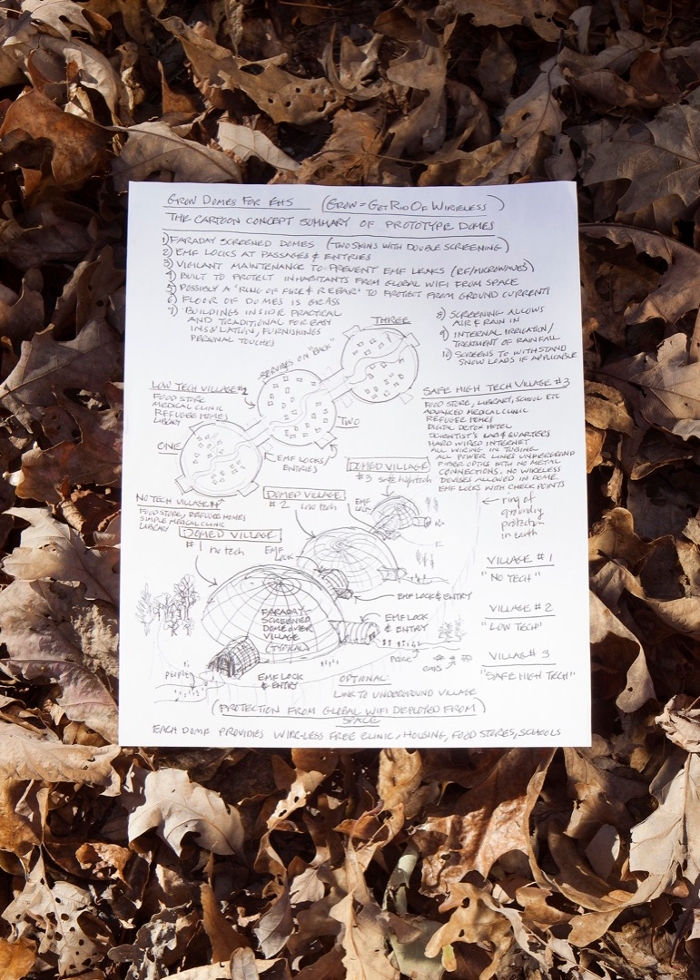 GROW DOMES FOR EHS (GROW = GET RID OF WIRELESS)
THE CARTOON CONCEPT SUMMARY OF PROTOTYPE DOMES
1) FARADAY SCREENED DOMES (TWO SKINS WITH DOUBLE SCREENING)
2) EMF LOCKS AT PASSAGES & ENTRIES
3) VIGILANT MAINTENANCE TO PREVENT EMF LEAKS (RF/MICROWAVES)
4) BUILT TO PROTECT INHABITANTS FROM GLOBAL WIFI FROM SPACE
5) POSSIBLY A "RING OF FIRE & REBAR" TO PROTECT FROM GROUND CURRENT
6) FLOOR OF DOMES IS GRASS
7) BUILDINGS INSIDE PRACTICAL
AND TRADITIONAL FOR EASY
INSULATION, FURNISHINGS
PERSONAL TOUCHES
8) SCREENING ALLOWS
AIR & RAIN IN
9) INTERNAL IRRIGATION/
TREATMENT OF RAINFALL
10) SCREENS TO WITHSTAND
SNOW LOADS IF APPLICABLE
THREE
LOW TECH VILLAGE #2
FOOD STORE
MEDICAL CLINIC
REFUGEE HOMES
LIBRARY
TWO
ONE
EMF LOCKS
ENTRIES
SAFE HIGH TECH VILLAGE #3
FOOD STORE, LIBRARY, SCHOOL ETC
ADVANCED MEDICAL CLINIC
REFUGEE HOMES
DIGITAL DETOX HOTEL
SCIENTIST'S LAB & QUARTERS
HARD WIRED INTERNET
ALL WIRING IN TUBING
ALL POWER LINES UNDERGROUND
FIBER OPTIC WITH NO METAL
CONNECTIONS. NO WIRELESS
DEVISES ALLOWED IN DOME
EMF LOCKS WITH CHECK POINTS
NO TECH VILLAGE #1
FOOD STORE, REFUGEE HOMES
SIMPLE MEDICAL CLINIC
LIBRARY
DOMED VILLAGE
#3 safe high tech
DOMED VILLAGE
#2 low tech
DOMED VILLAGE
#1 no tech
EMF
LOCK
EMF
LOCK
ring of
grounding
protection
in earth
VILLAGE #1
"NO TECH"
EMF LOCK & ENTRY
VILLAGE #2
"LOW TECH"
FARADAY
SCREENED
DOME OVER
VILLAGE
(TYPICAL)
EMF LOCK
& ENTRY
VILLAGE #3
"SAFE HIGH TECH"
people
EMF LOCK
& ENTRY
OPTIONAL:
LINK TO UNDERGROUND VILLAGE
(PROTECTION FROM GLOBAL WIFI DEPLETED FROM
SPACE)
EACH DOME PROVIDES WIRELESS FREE CLINIC, HOUSING, FOOD STORES, SCHOOLS